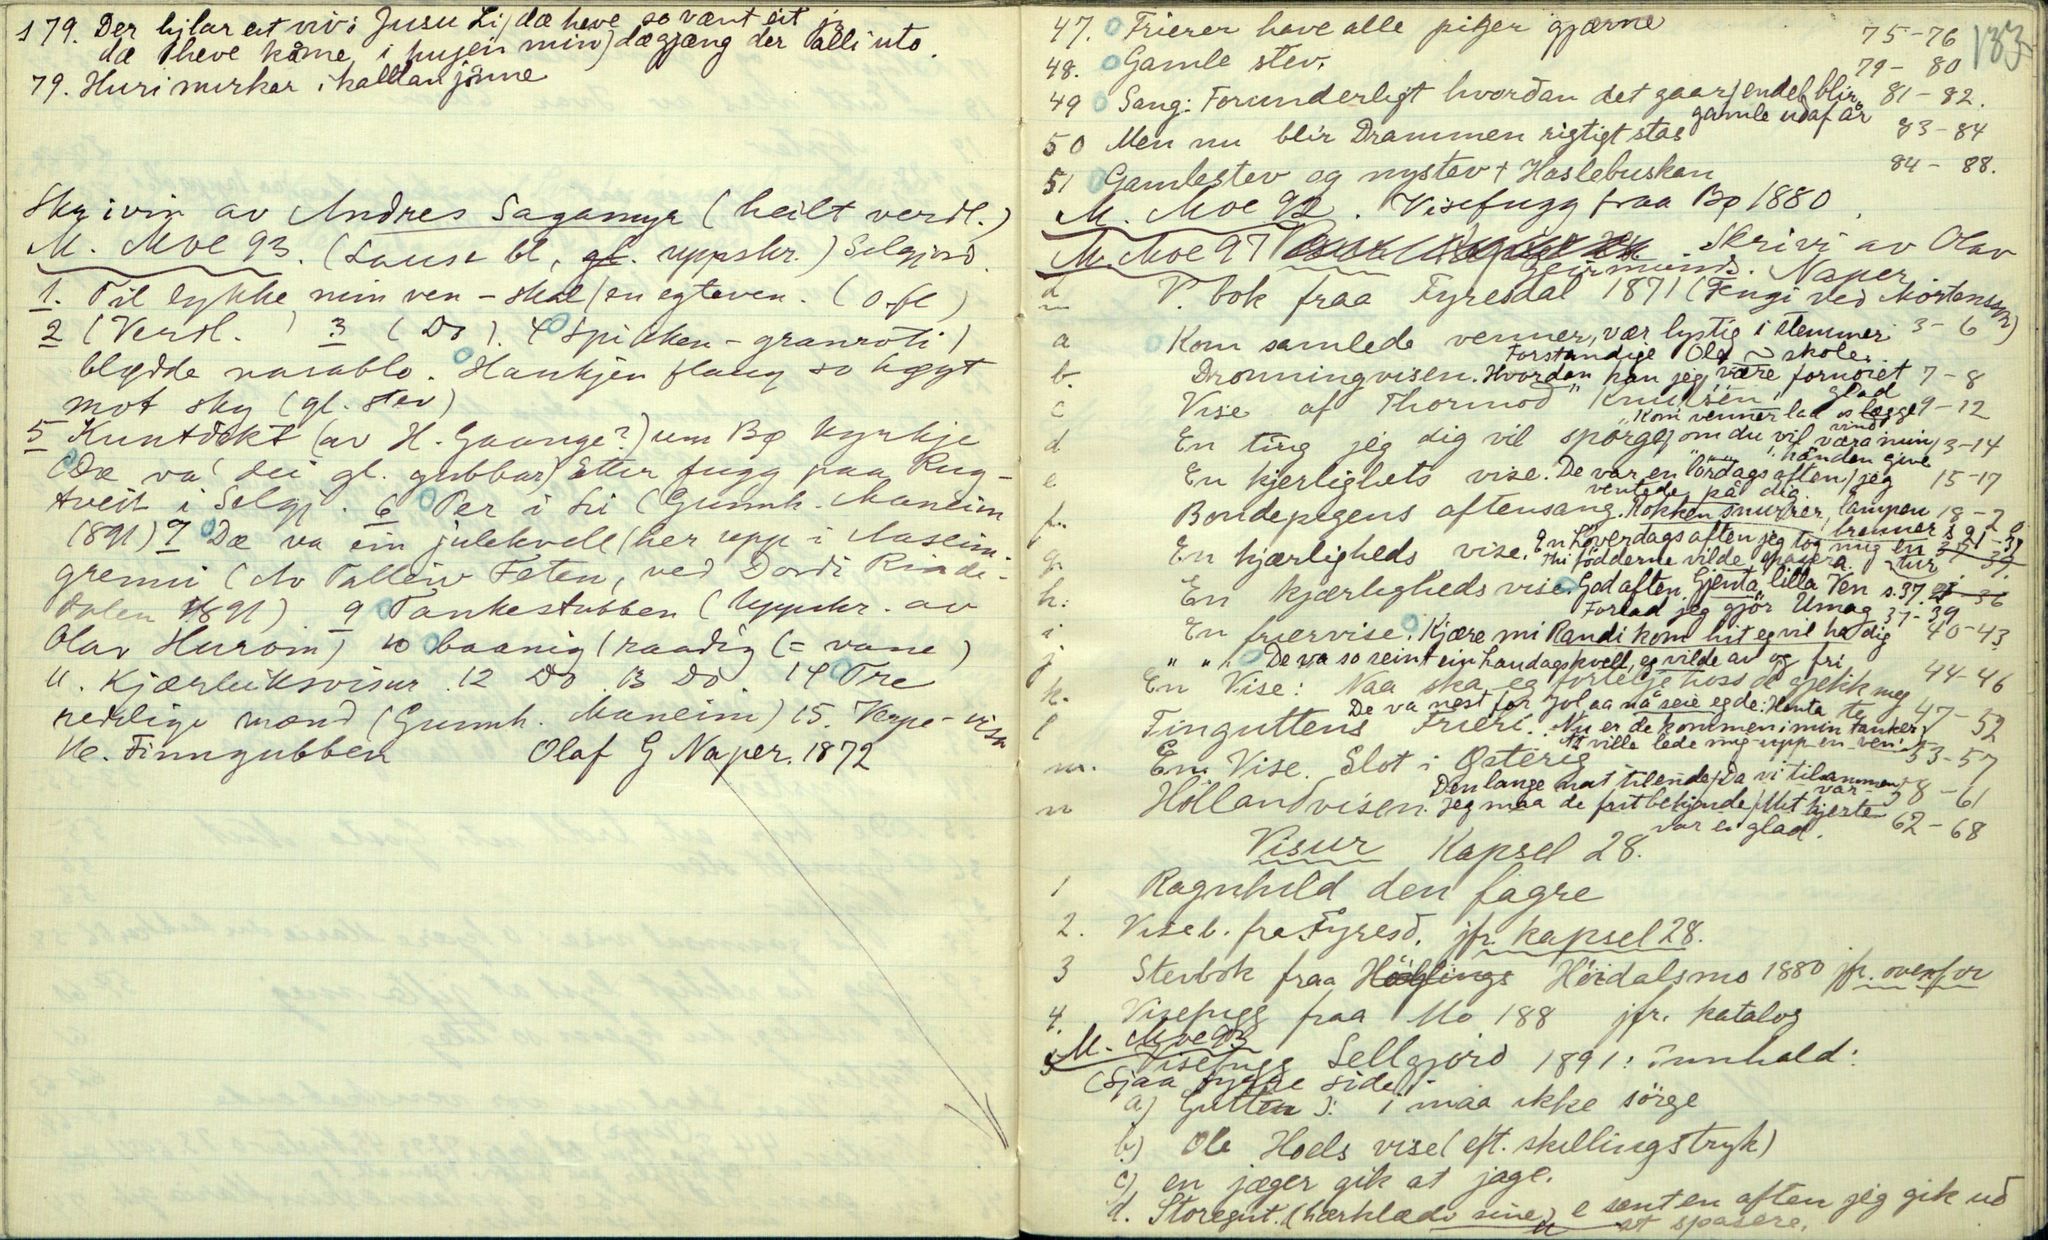 179. Der kjlar eit viv i Jusu Li, dæ heve so vænt eit
dæ heve kåme i hugjen min, dægjæng der alli uto.
79. Huri murkar i hallanjönne
Skrivin av Andres Sagamyr (heilt verdl.)
M. Moe 93. (Lause bl, gl. uppskr.) Selgjord.
1. Til lykke min ven - skal / en egteven. (o.fl)
2 (Verdl. 3 (Do). 4 Spikken - granroti /
blødde nasablo. Haukjen flaug so høgt
mot sky (gl. stev)
5 Kuntrakt (av H. Gaange?) um Bø kyrkje
(Dæ va' dei gl. gubbar) Etter fugg paa Rug-
tveit i Selgj. 6 Per i Li (Gunnh. Maneim
1891) 7 Dæ va ein julekvell (her upp i Aaseim-
grenni (Av Talleiv Foten, ved Dordi Rindi-
dalen 1891) 9 Tankestubben (Uppskr. av
Olav Hurom) 10 baanig (raadig (= vane)
11. Kjærleiksvisur 12 Do 13 Do. 14 Tre
redelige mænd (Gunnh. Maneim) 15. Vegge-visa
16. Finngubben Olaf G Naper. 1872
133
47. Frierer have alle piger gjærne 75-76
48. Gamle stev. 79-80
49 Sang: Forunderligt hvordan det gaar / endel blir gamle udaf år 81-82.
50 Men nu blir Drammen rigtigt stas 83-84
51 Gamlestev og nystev + Haslebuskan 84-88.
M. Moe 92. Visefugg fraa Bø 1880
M. Moe 97 Skrivi av Olav
Geirmunds. Naper
V. bok fraa Fyresdal 1871 (Fengi ved Mortensson)
a Kom samlede venner, vær lystig i stemmer 3-6
b. Dronningvisen. Hvordan kan jeg være fornøiet 7-8
Forstandige Olaf ~ skole.
c Vise af Thormod Knudsen. glad
"Kom venner lad os lægge vind" 9-12
d En ting jeg dig vil spørge, om du vil være min 13-14
i hånden give
e En kjerlighets vise. De var en lördags aften / jeg 15-17
ventede på dig
f. Bondepigens aftensang. Rokken snurrer, lampen brenner 18-20
g. En kjærligheds vise. En Löverdags aften jeg tog mig en tur s 21-
thi födderne vilde spasera.
h. En kjærligheds vise. God aften, Gjenta lilla Ven s. 37.
Forlad jeg gjör Umag 37-39
i En friervise. Kjære mi Randi kom hit eg vil ha dig 40-43
j " " De va so seint ein Laudagskvell, eg vilde av og fri
k. En Vise: Naa ska eg fortelje hoss de gjekk meg 44-46
De va nest for Jol, aa nå seie eg de: Henta te
l Tinguttens Frieri. Nu er de kommen i min tanker 47-52
At ville lede mig upp en ven
m. En Vise. Slot i Østerig 53-57
Den lange nat tilende / Da vi tilsammen var 58-61
n Hollandvisen. Jeg maa de frit bekjende / Mit hjerte var ei glad. 62-68
Visur Kapsel 28.
1 Ragnhild den fagre
2. Viseb. fra Fyresd. jfr. kapsel 28.
3 Stevbok fraa Höidalsmo 1880 jfr. ovenfor
4. Visefugg fraa Mo 188 jfr. katalog
M. Moe 93
5 Visefugg Sellgjord 1891: innhald:
(Sjaa hygge side)
a) Gutten ): i maa ikke sörge
b) Ole Hoels vise (eft. skillingstryk)
c) en jæger gik at jage.
d. Storegut. (hærklædi sine) e sent en aften jeg gik ud
at spasere.